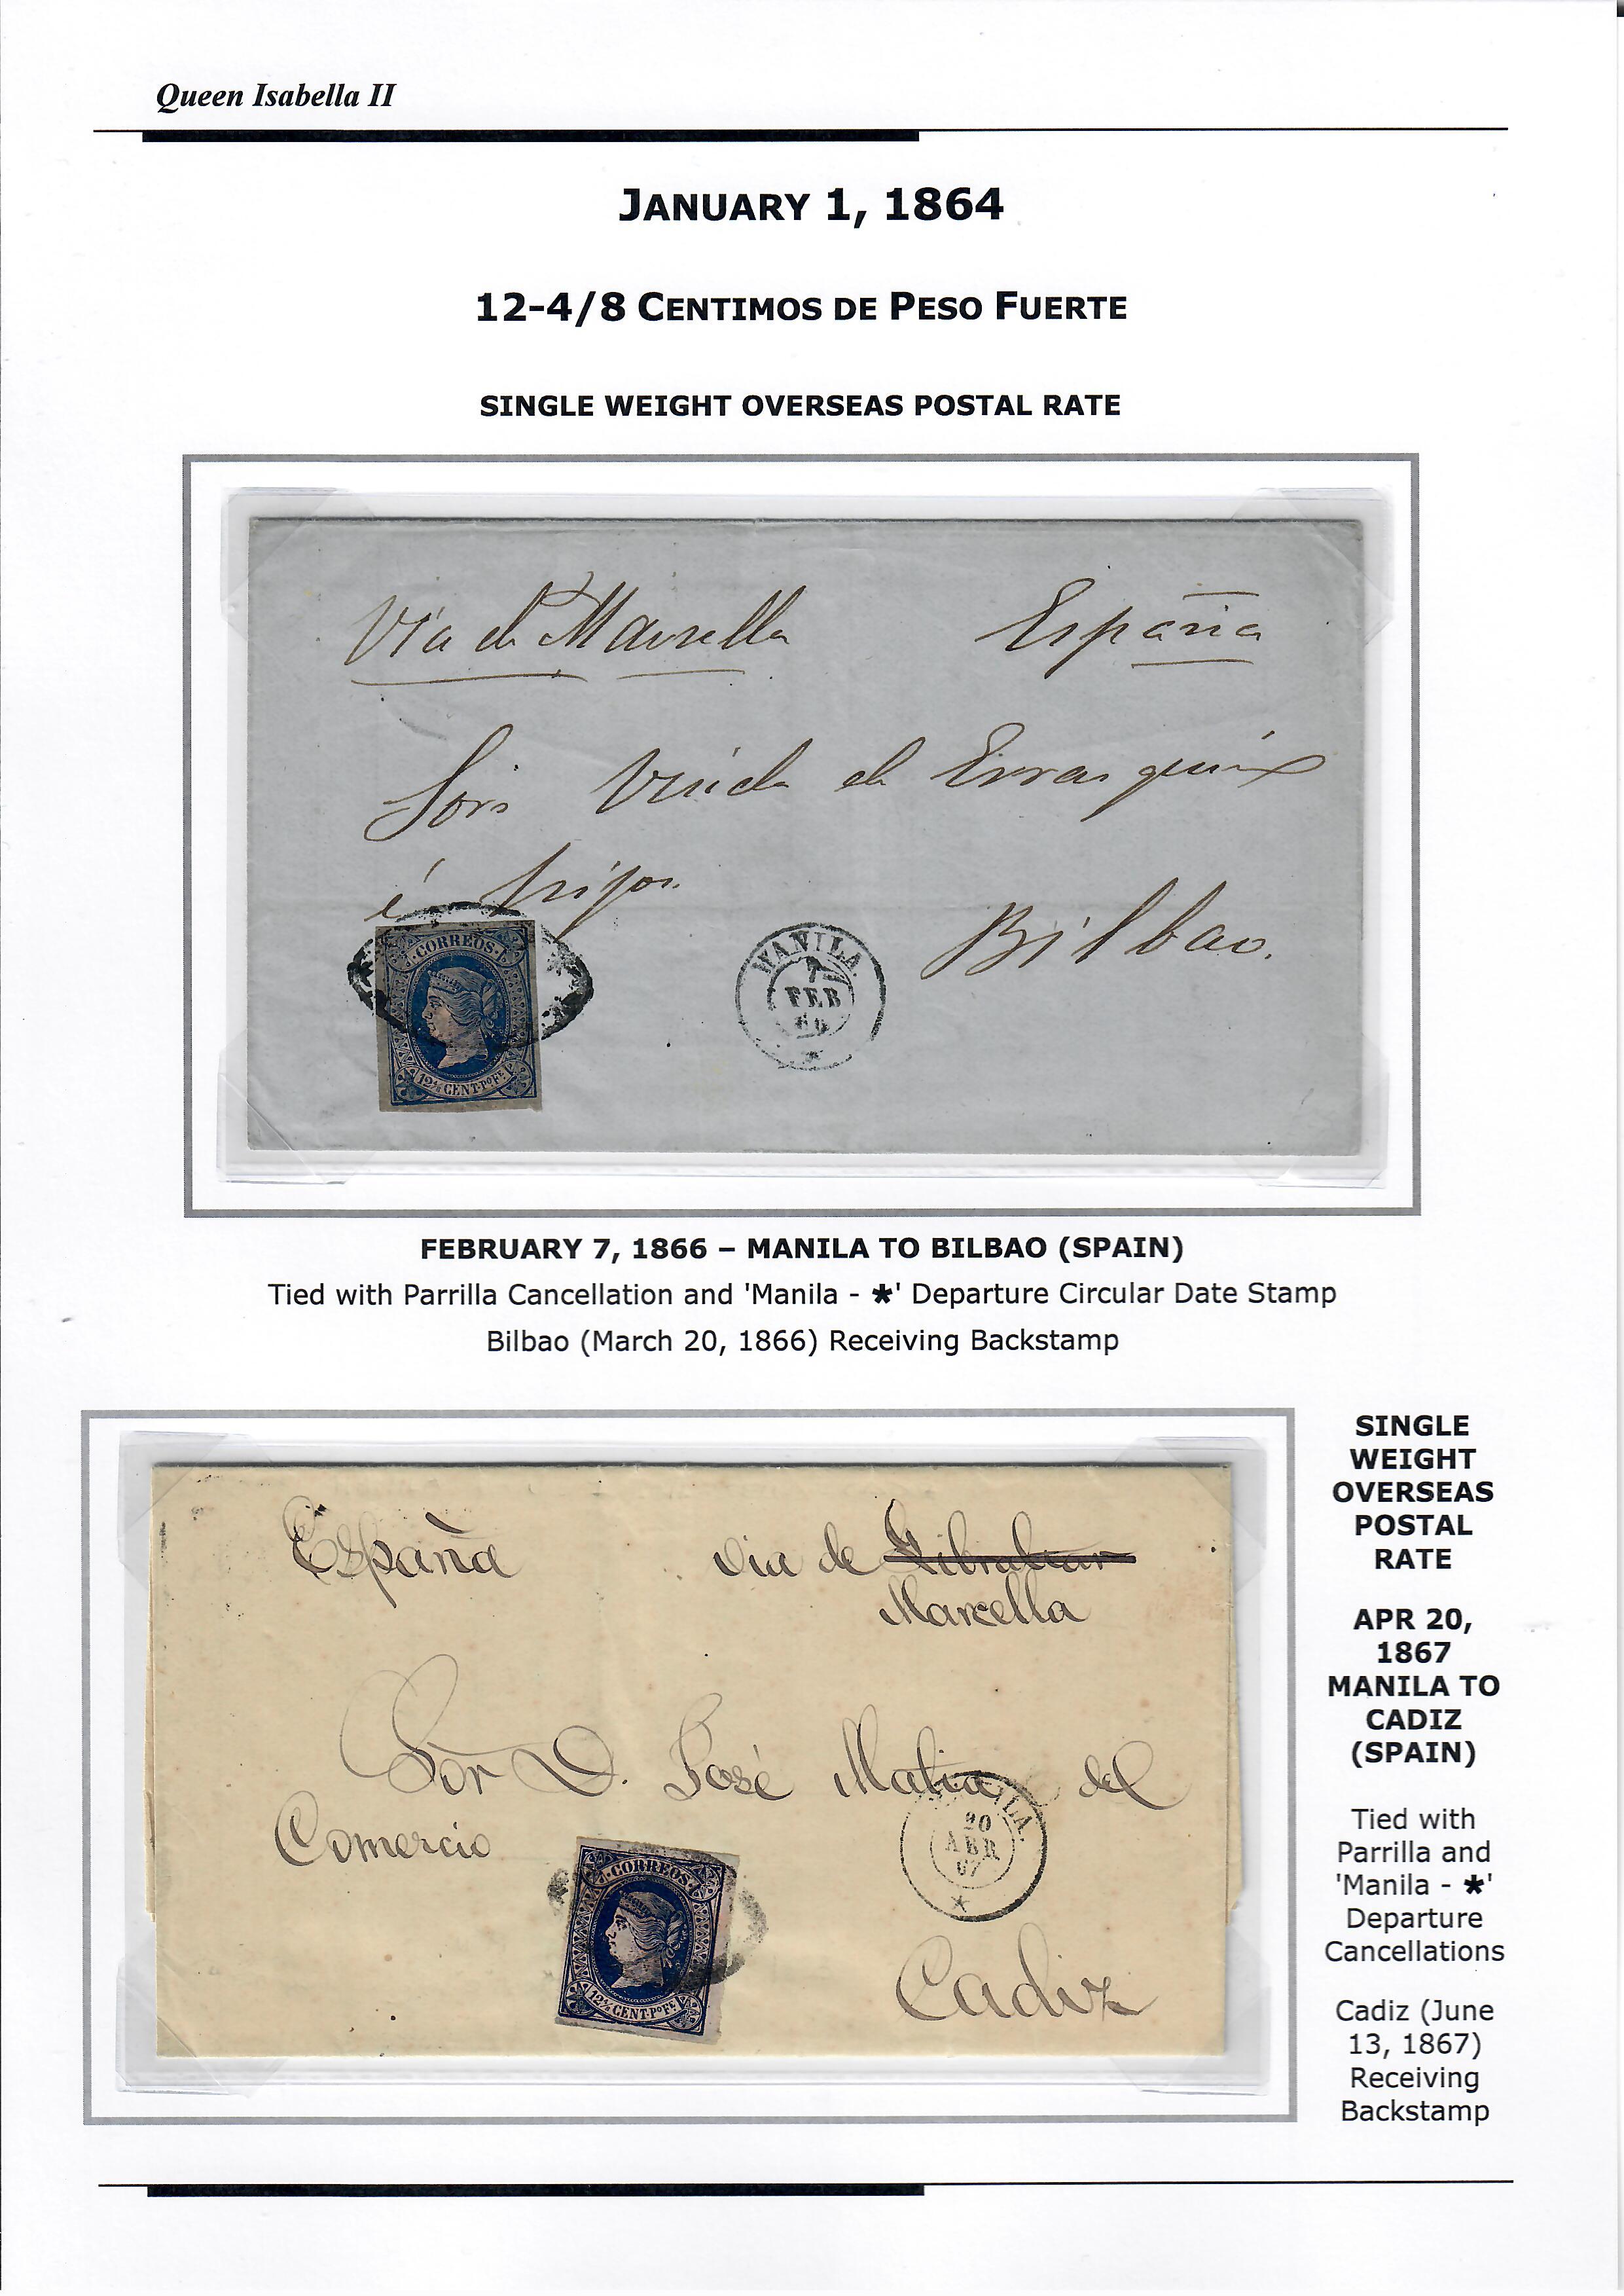 Queen Isabella II
JANUARY 1, 1864
12-4/8 CENTIMOS DE PESO FUERTE
SINGLE WEIGHT OVERSEAS POSTAL RATE
Via de Marsella España
Sors Viuda de Errazquin
é hijos.
Bilbao.
CORREOS
12 4/8 CENT. Po Fe
MANILA
7
FEB
66
*
FEBRUARY 7, 1866 – MANILA TO BILBAO (SPAIN)
Tied with Parrilla Cancellation and 'Manila - *' Departure Circular Date Stamp
Bilbao (March 20, 1866) Receiving Backstamp
España via de Gibraltar
Marcella
Sor D. José Matia del
Comercio
Cadiz
CORREOS
12 4/8 CENT. Po Fe
MANILA.
20
ABR
67
*
SINGLE
WEIGHT
OVERSEAS
POSTAL
RATE
APR 20,
1867
MANILA TO
CADIZ
(SPAIN)
Tied with
Parrilla and
'Manila - *'
Departure
Cancellations
Cadiz (June
13, 1867)
Receiving
Backstamp